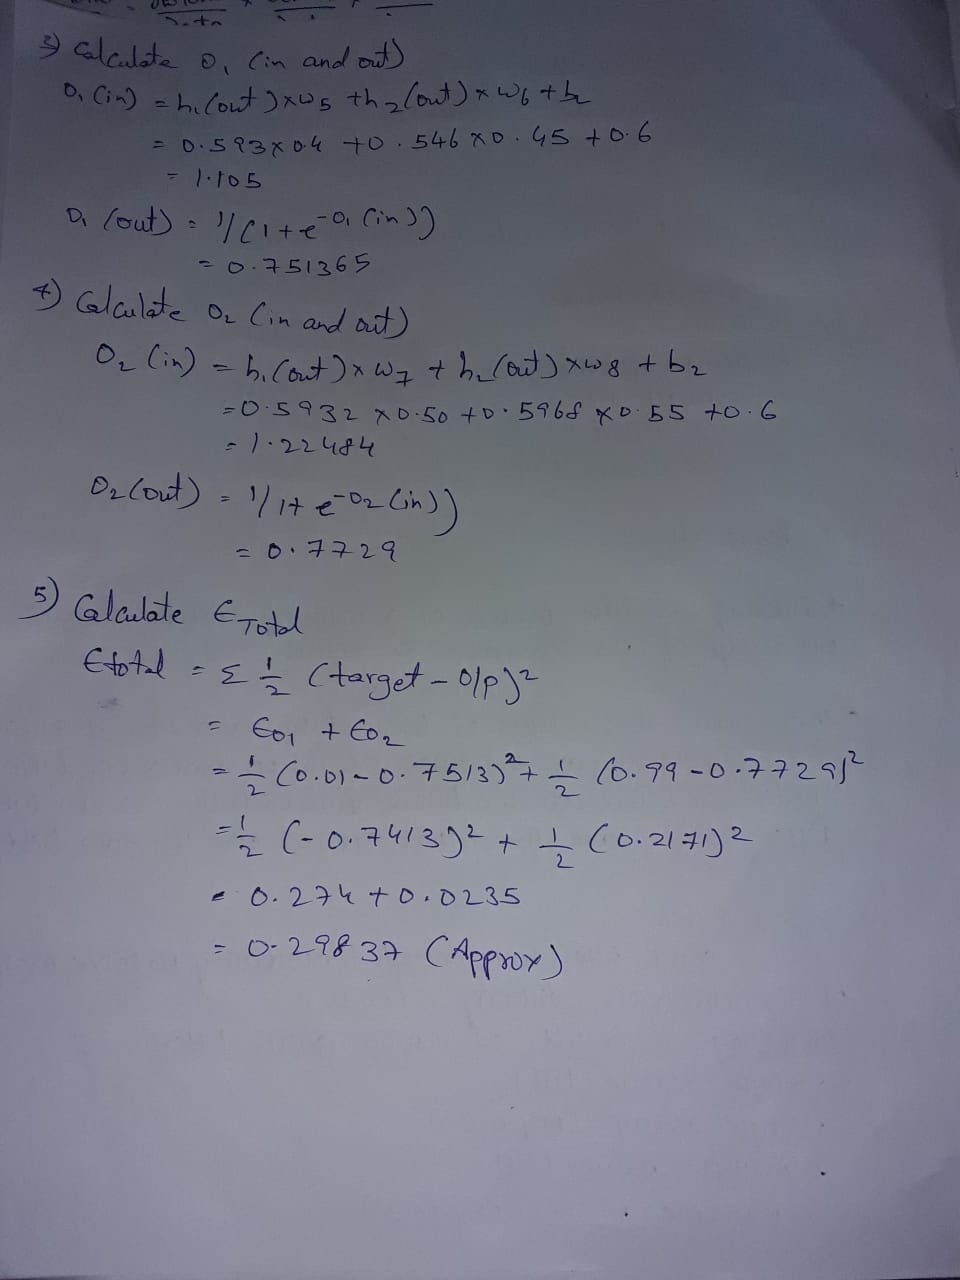 3) Calculate O₁ (in and out)
O₁ (in) = h₁(out) x w5 + h2(out) x w6 + b2
= 0.593 x 0.4 + 0.546 x 0.45 + 0.6
= 1.105
O₁ (out) = 1/(1+e^-O₁(in))
= 0.751365
4) Calculate O2 (in and out)
O2 (in) = h₁(out) x w7 + h2(out) x w8 + b2
= 0.5932 x 0.50 + 0.5968 x 0.55 + 0.6
= 1.22484
O2 (out) = 1/1+e^-O2(in))
= 0.7729
5) Calculate ETotal
Etotal = Σ 1/2 (target - O/p)²
= EO1 + EO2
= 1/2 (0.01 - 0.7513)² + 1/2 (0.99 - 0.7729)²
= 1/2 (-0.7413)² + 1/2 (0.2171)²
= 0.274 + 0.0235
= 0.29837 (Approx)